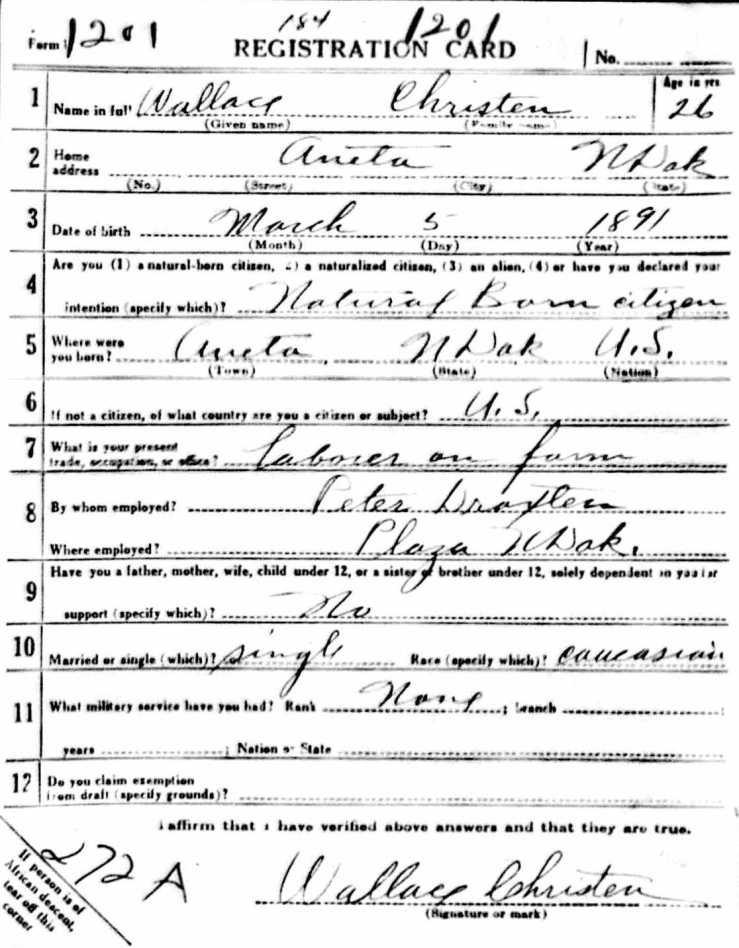 184
Form 1 1201 REGISTRATION CARD 1201 No.
1 Name in full Wallace Christen Age in yrs 26
(Given name) (Family name)
2 Home address Aneta N Dak
(No.) (Street) (City) (State)
3 Date of birth March 5 1891
(Month) (Day) (Year)
4 Are you (1) a natural-born citizen, (2) a naturalized citizen, (3) an alien, (4) or have you declared your
intention (specify which)? Natural Born citizen
5 Where were you born? Aneta, N Dak U.S.
(Town) (State) (Nation)
6 If not a citizen, of what country are you a citizen or subject? U.S.
7 What is your present trade, occupation, or office? Laborer on farm
8 By whom employed? Peter Draxten
Where employed? Plaza N Dak.
9 Have you a father, mother, wife, child under 12, or a sister or brother under 12, solely dependent on you for
support (specify which)? No
10 Married or single (which)? single Race (specify which)? caucasian
11 What military service have you had? Rank None ; branch ;
years ; Nation or State
12 Do you claim exemption
from draft (specify grounds)?
I affirm that I have verified above answers and that they are true.
272 A
Wallace Christen
(Signature or mark)
If person is of
African descent,
tear off this
corner